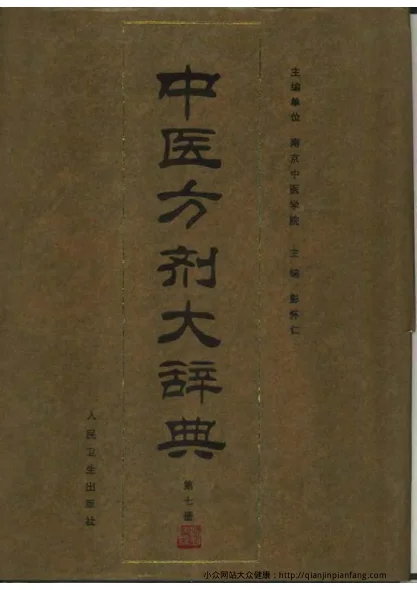 主编单位 南京中医学院 主编 彭怀仁
中医方剂大辞典
第七册
人民卫生出版社
小众网站大众健康：http://qianjinpianfang.com